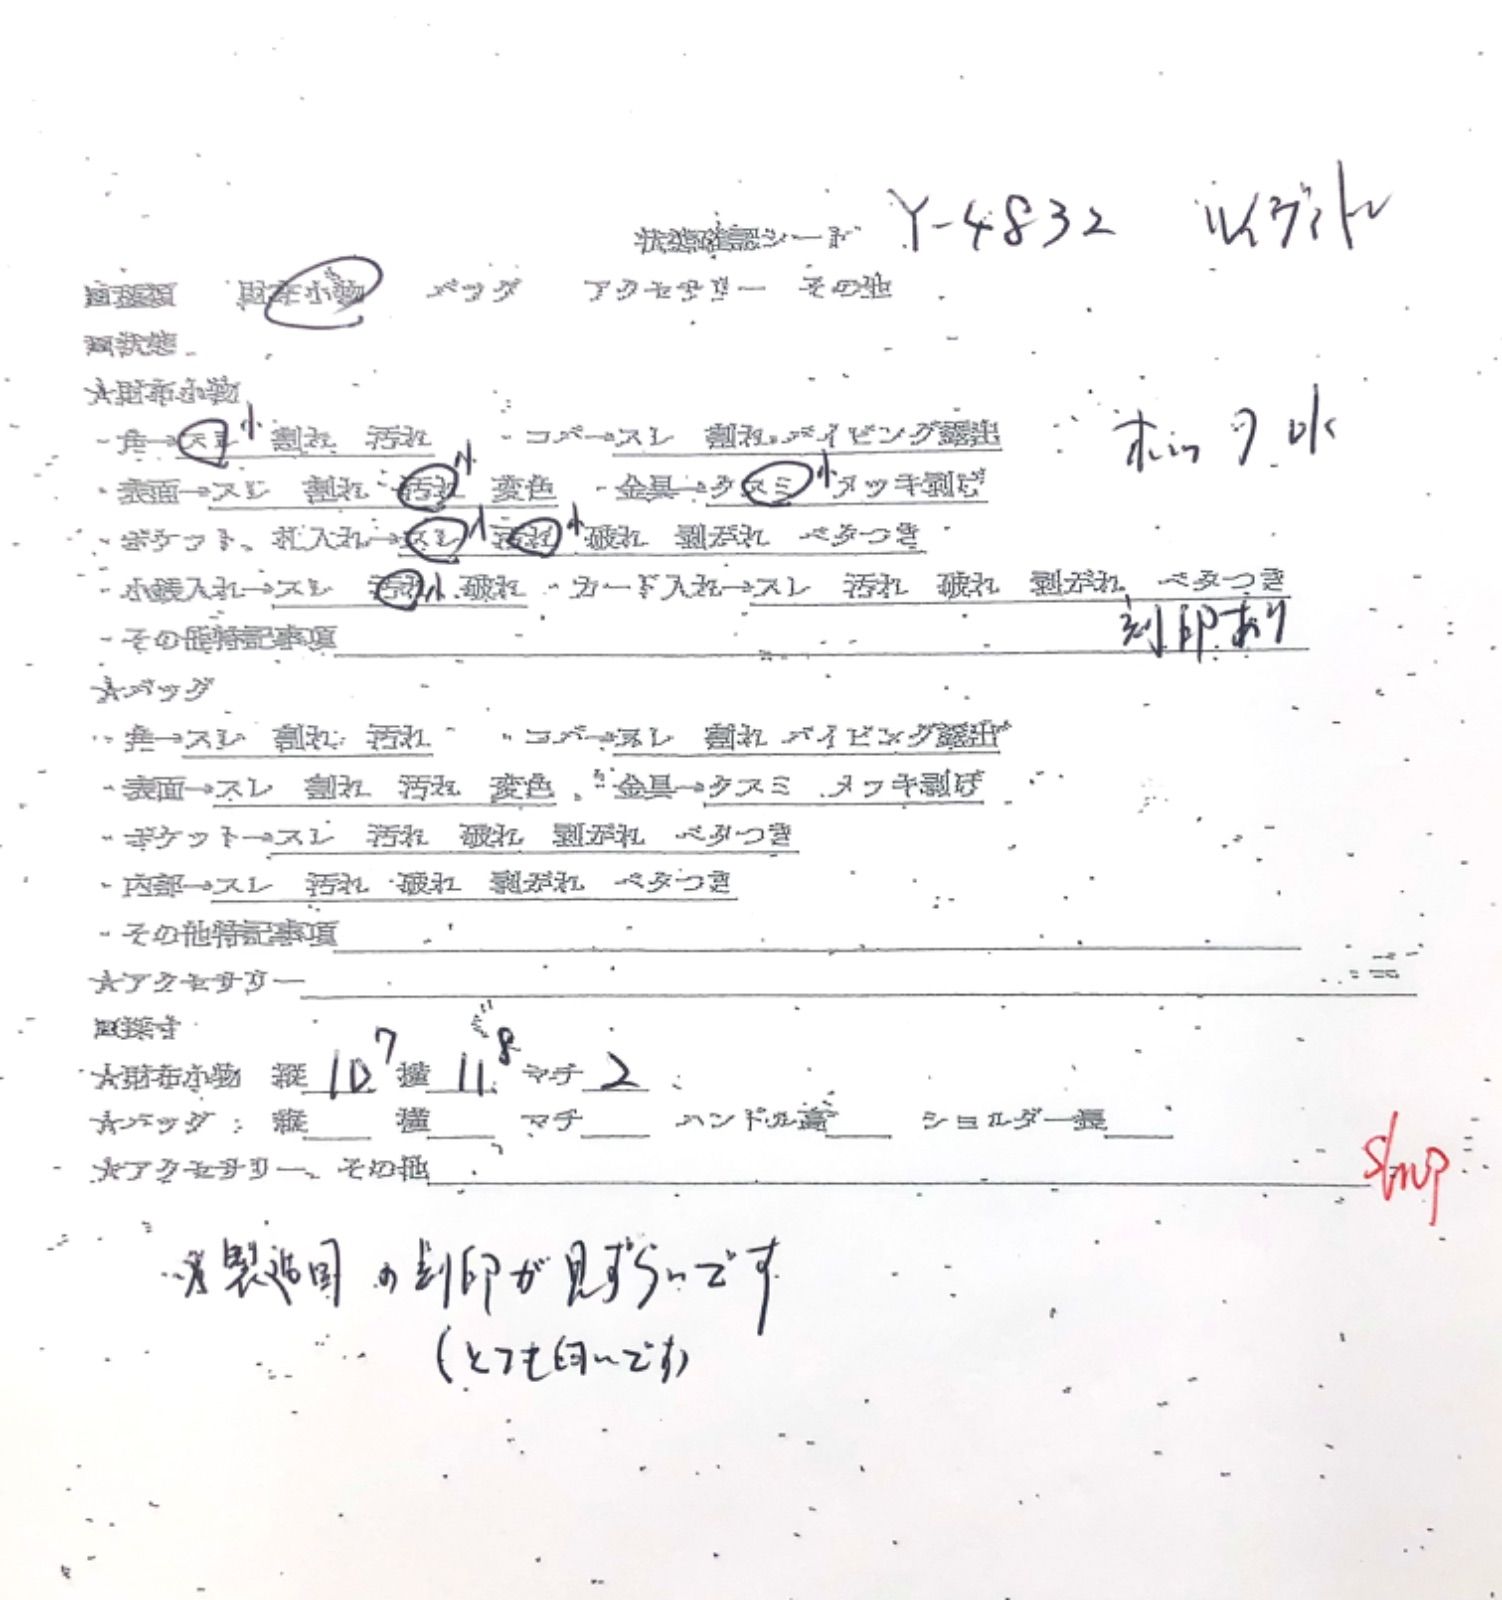 状態確認シート Y-4832 ルイヴィトン
■種類 財布小物 バッグ アクセサリー その他
■状態
★財布小物
・角→スレ小 割れ 汚れ ・コバ→スレ 割れ パイピング露出 ホック ok
・表面→スレ 割れ 汚れ小 変色 ・金具→クスミ小 メッキ剥げ
・ポケット、札入れ→スレ小 汚れ小 破れ 剥がれ ベタつき
・小銭入れ→スレ 汚れ小 破れ ・カード入れ→スレ 汚れ 破れ 剥がれ ベタつき
・その他特記事項 刻印あり
★バッグ
・角→スレ 割れ 汚れ ・コバ→スレ 割れ パイピング露出
・表面→スレ 割れ 汚れ 変色 ・金具→クスミ メッキ剥げ
・ポケット→スレ 汚れ 破れ 剥がれ ベタつき
・内部→スレ 汚れ 破れ 剥がれ ベタつき
・その他特記事項
★アクセサリー
■採寸
★財布小物 縦 10 7 横 11 8 マチ 2
★バッグ 縦 横 マチ ハンドル高 ショルダー長
★アクセサリー、その他
※製造国の刻印が見ずらいです
(とても匂いです)